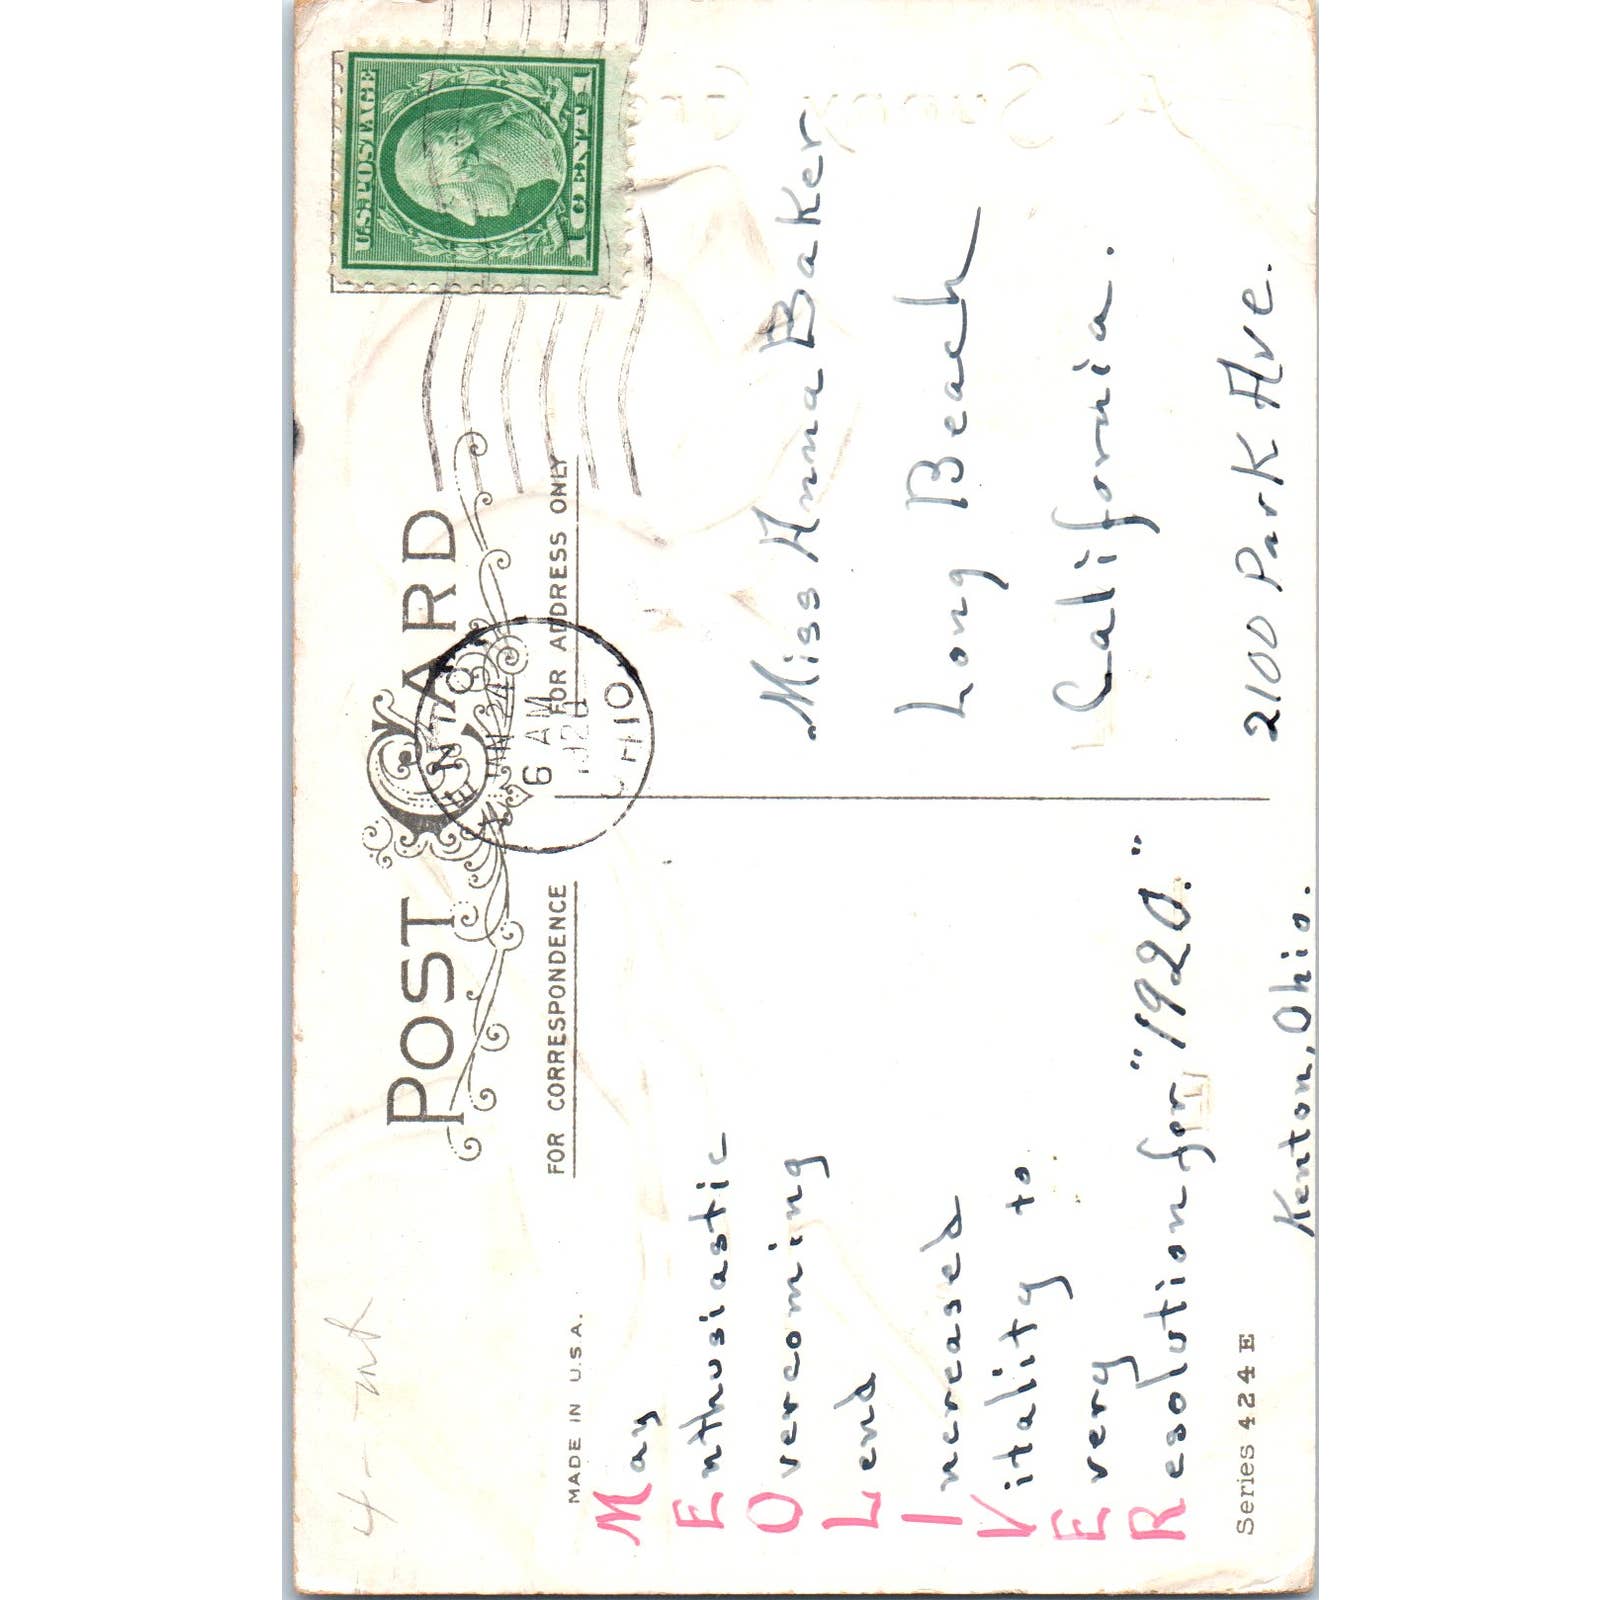 4 -
U.S. POSTAGE
1 CENT 1
POST CARD
KENTON
JAN 24
6 AM
1920
OHIO
MADE IN U.S.A.
FOR CORRESPONDENCE
FOR ADDRESS ONLY
May
Enthusiastic
Overcoming
Lend
Increased
Vitality to
Every
Resolution for "1920."
Kenton, Ohio.
Series 424 E
Miss Anna Baker
Long Beach
California.
2100 Park Ave.